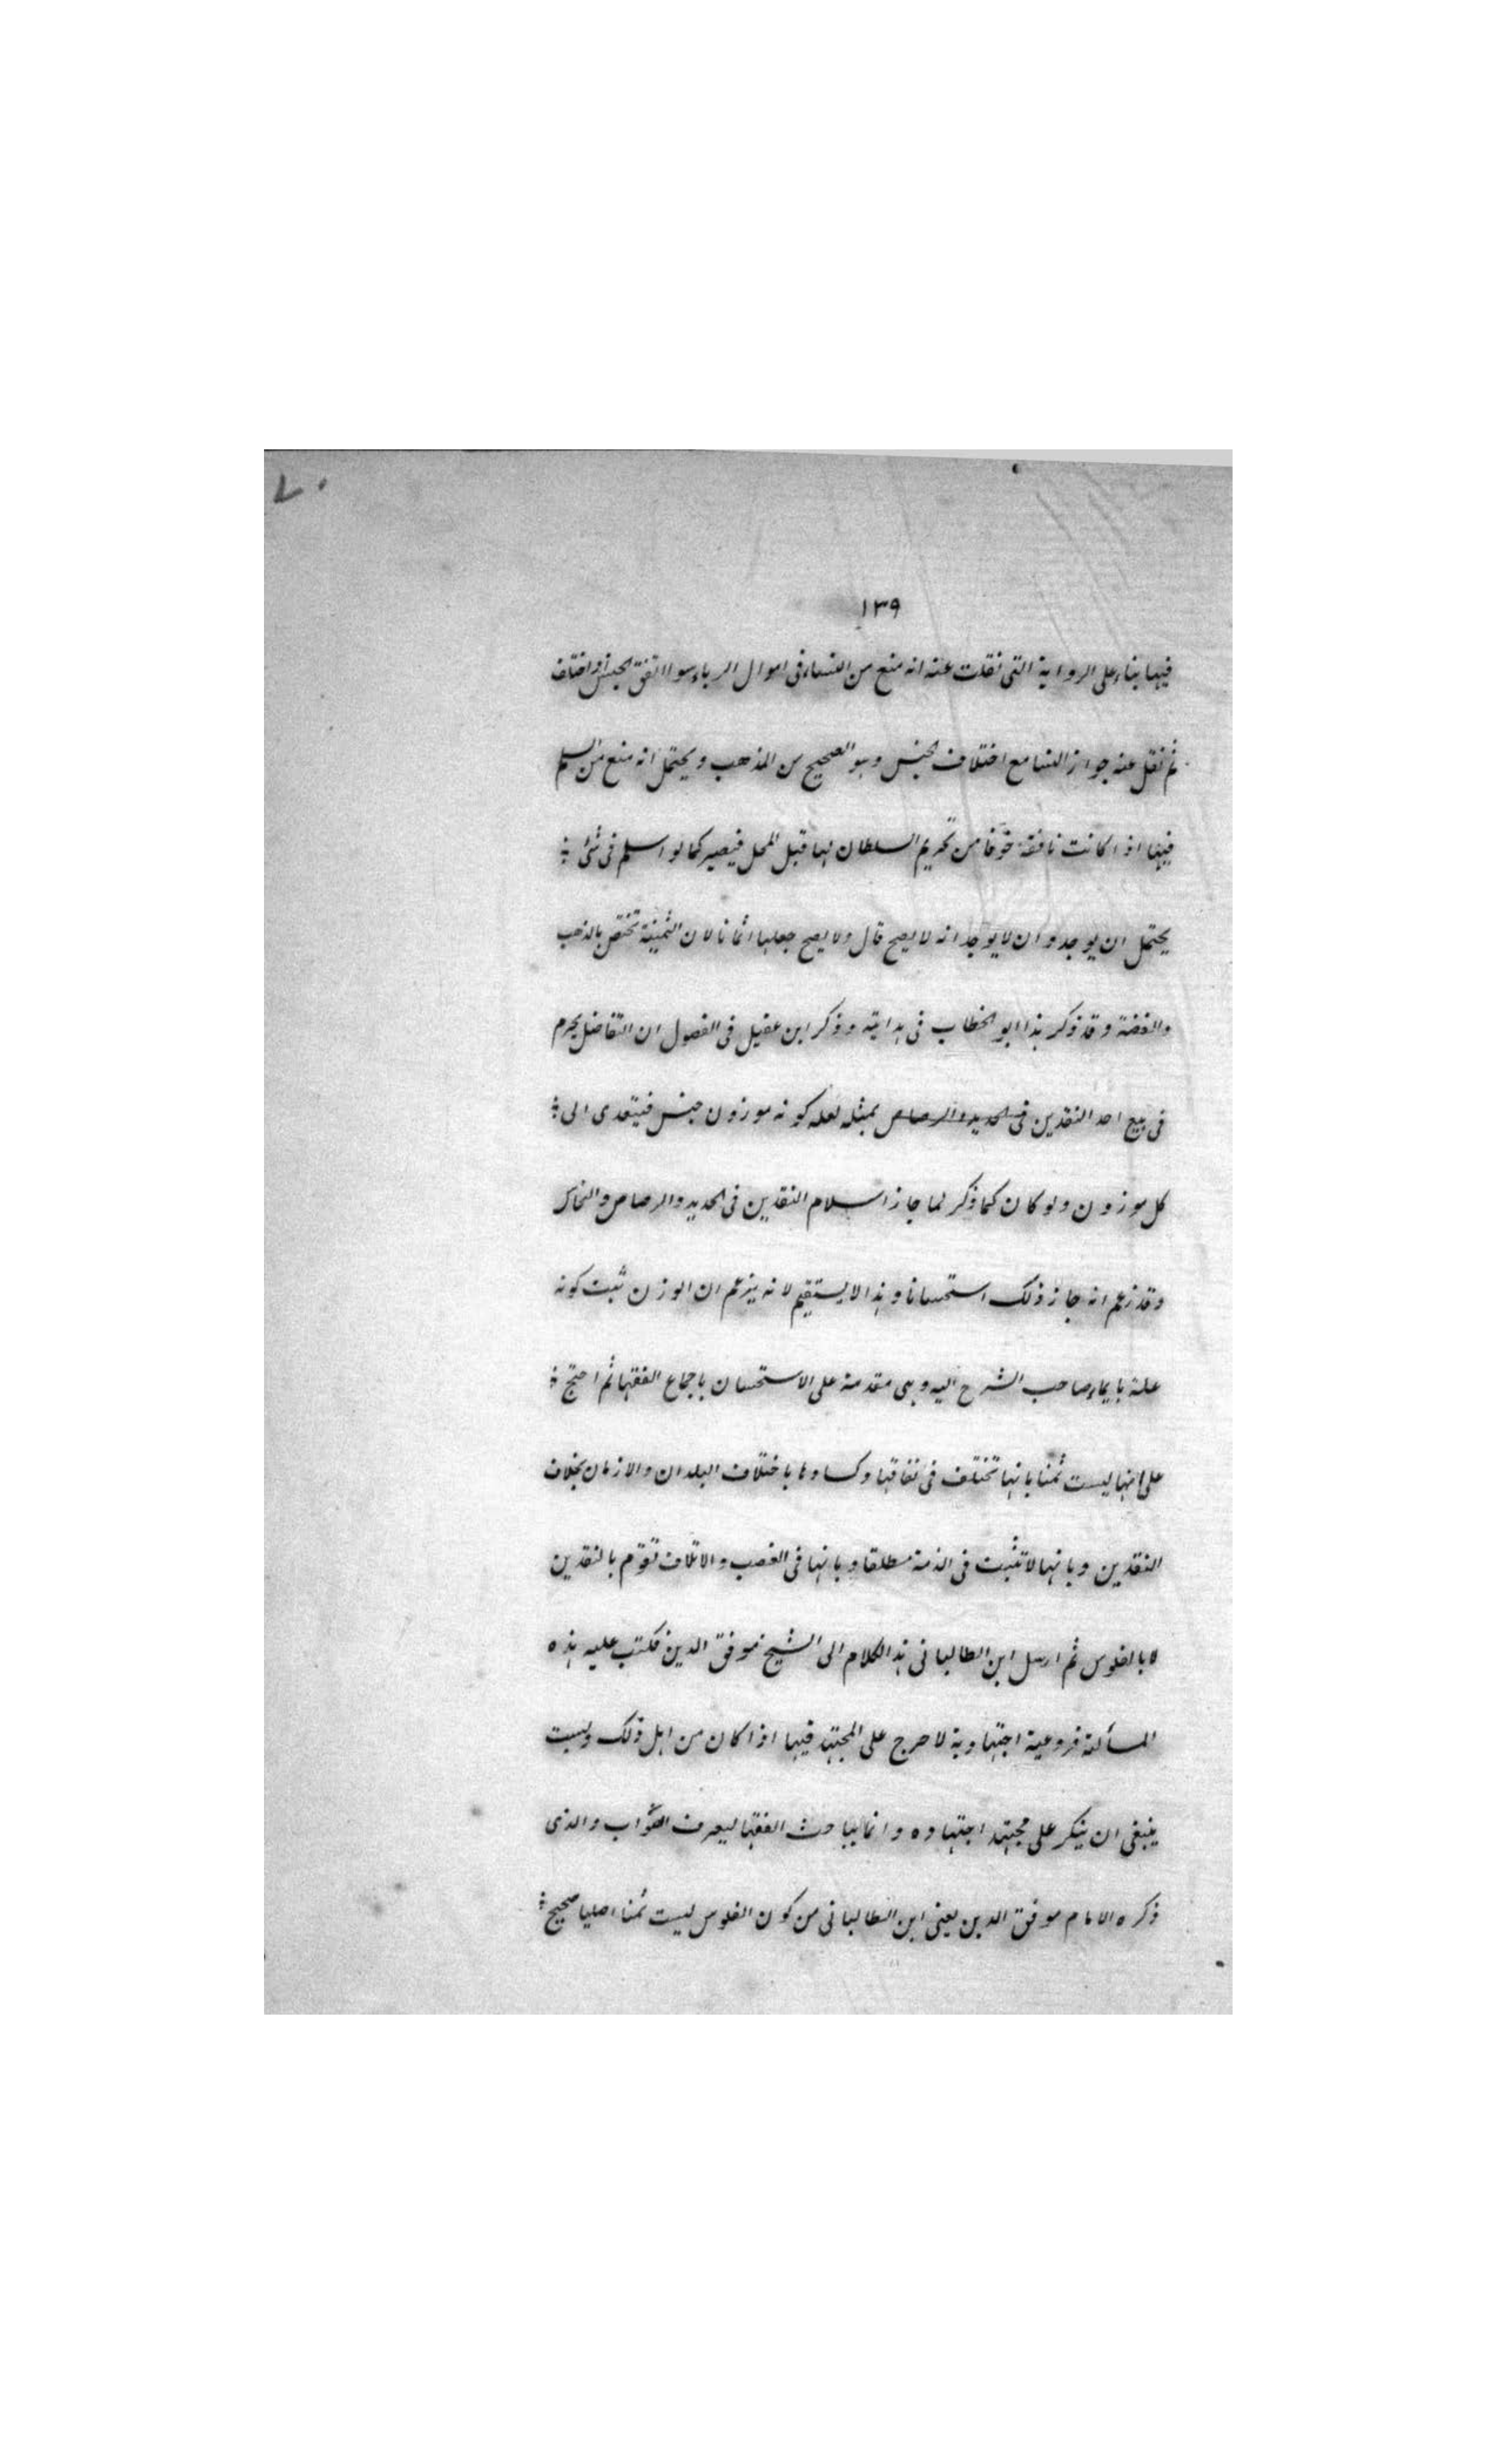 ٧٠
١٣٩
فيها بناء على الرواية التى نقلت عنه انه منع من النساء فى اموال الرباء سوا اتفق الجنس او اختلف
ثم نقل عنه جواز النسا مع اختلاف الجنس وهو الصحيح من المذهب ويحتمل انه منع من السلم
فيها اذا كانت نافقة خوفا من تحريم السلطان لها قبل المحل فيصير كما لو اسلم فى شئ
يحتمل ان يوجد وان لا يوجد انه لا يصح قال ولا يصح جعلها اثمانا لان الثمنية تختص بالذهب
والفضة وقد ذكر هذا ابو الخطاب فى هدايته وذكر ابن عقيل فى الفصول ان التفاضل يحرم
فى بيع احد النقدين فى الحديد والرصاص بمثله لعله كونه موزون جنس فيتعدى الى
كل موزون ولو كان كما ذكر لما جاز اسلام النقدين فى الحديد والرصاص والنحاس
وقد زعم انه جاز ذلك استحسانا وهذا لا يستقيم لانه يزعم ان الوزن ثبت كونه
علة بايماء صاحب الشرح اليه وهى مقدمة على الاستحسان باجماع الفقها ثم احتج
على انها ليست ثمنا بانها تختلف فى نفاقها وكسادها باختلاف البلدان والازمان بخلاف
النقدين وبانها لا تثبت فى الذمة مطلقا وبانها فى الغصب والاتلاف تقوم بالنقدين
لا بالفلوس ثم ارسل ابن الطالبانى هذا الكلام الى الشيخ موفق الدين فكتب عليه هذه
المسألة فروعية اجتهادية لا حرج على المجتهد فيها اذا كان من اهل ذلك وليست
ينبغى ان ينكر على مجتهد اجتهاده وانما يباحث الفقها ليعرف الصواب والذى
ذكره الامام موفق الدين يعنى ابن الطالبانى من كون الفلوس ليست ثمنا اصليا صحيح